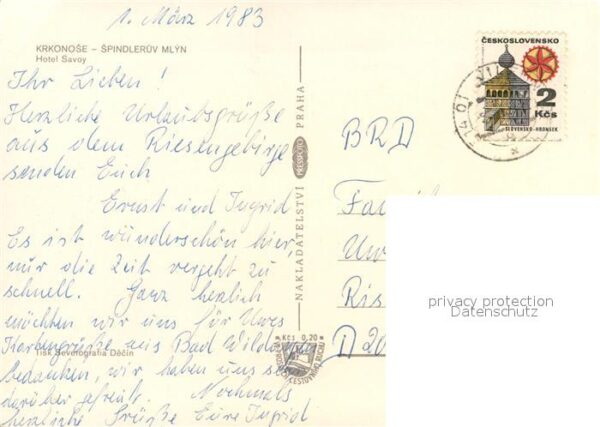 1. März 1983
KRKONOŠE – ŠPINDLERŮV MLÝN
Hotel Savoy
Ihr Lieben!
Herzliche Urlaubsgrüße
aus dem Riesengebirge
senden Euch
Ernst und Ingrid
Es ist wunderschön hier,
nur die Zeit vergeht zu
schnell. Ganz herzlich
möchten wir uns für Uwes
Kartengrüße aus Bad Wildungen
bedanken, wir haben uns sehr
darüber gefreut. Nochmals
herzliche Grüße Eure Ingrid
Tisk Severografia Děčín
NAKLADATELSTVÍ PRESSFOTO PRAHA
Kčs 0,20
ČESKOSLOVENSKO
2
Kčs
SLOVENSKO-HRONSEK
BRD
Fam
Uw
Ris
D 20
privacy protection
Datenschutz